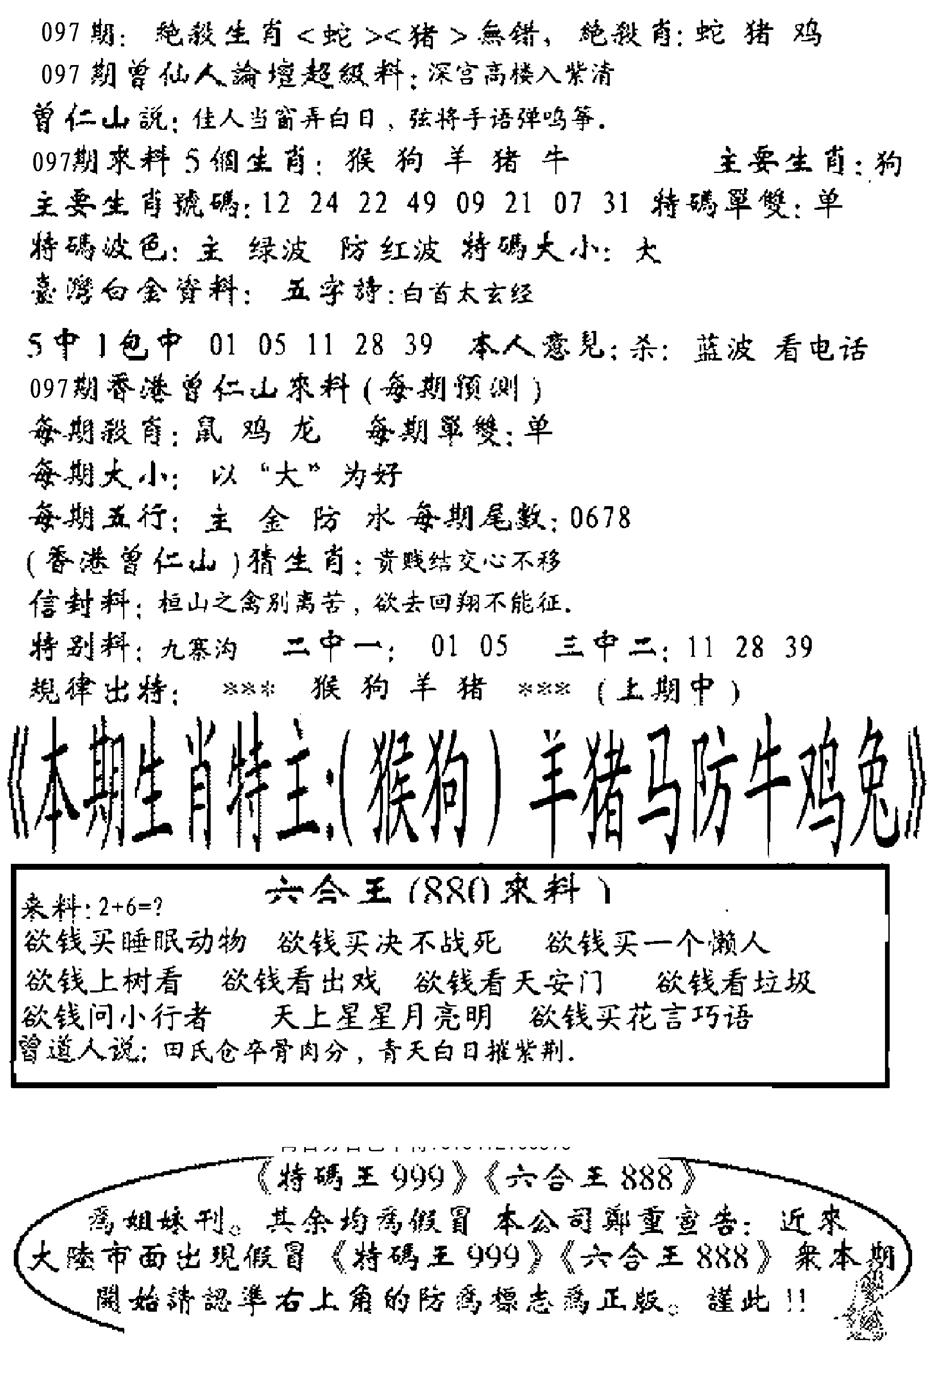 097期: 絶殺生肖<蛇><猪>無错, 絶殺肖:蛇 猪 鸡
097期曾仙人論壇超級料:深宫高楼入紫清
曾仁山説:佳人当窗弄白日,弦将手语弹鸣筝.
097期來料5個生肖:猴 狗 羊 猪 牛 主要生肖:狗
主要生肖號碼:12 24 22 49 09 21 07 31 特碼單雙:单
特碼波色:主 绿波 防红波 特碼大小:大
臺灣白金資料: 五字詩:白首太玄经
5中1包中 01 05 11 28 39 本人意見:杀:蓝波 看电话
097期香港曾仁山來料(每期預測)
每期殺肖:鼠 鸡 龙 每期單雙:单
每期大小: 以“大”为好
每期五行: 主 金 防 水 每期尾數:0678
(香港曾仁山)猜生肖:贵贱结交心不移
信封料:桓山之禽别离苦,欲去回翔不能征.
特别料:九寨沟 二中一: 01 05 三中二:11 28 39
規律出特: *** 猴 狗 羊 猪 *** (上期中)
《本期生肖特主:(猴狗)羊猪马防牛鸡兔》
六合王(880來料)
来料:2+6=?
欲钱买睡眠动物 欲钱买决不战死 欲钱买一个懒人
欲钱上树看 欲钱看出戏 欲钱看天安门 欲钱看垃圾
欲钱问小行者 天上星星月亮明 欲钱买花言巧语
曾道人说:田氏仓卒骨肉分,青天白日摧紫荆.
《特碼王999》《六合王888》
爲姐妹刊。其余均爲假冒 本公司鄭重宣告: 近來
大陸市面出現假冒《特碼王999》《六合王888》衆本期
開始請認準右上角的防爲標志爲正版。謹此!!